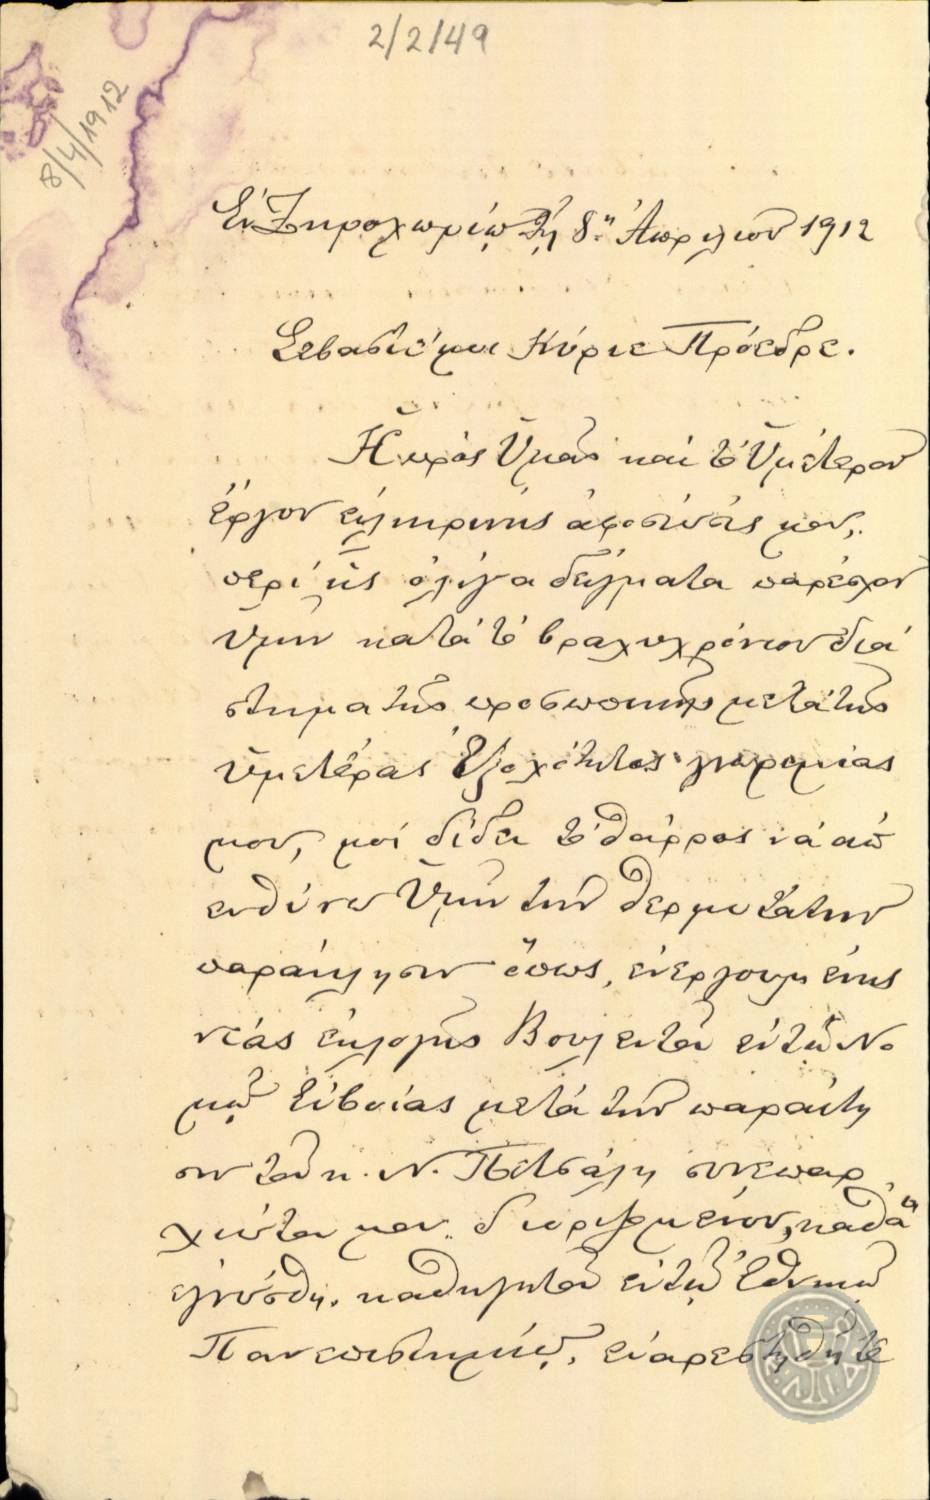 2/2/49
8/4/1912
Ἐν Ξηροχωρίῳ τῇ 8ῃ Ἀπριλίου 1912
Σεβαστέ μοι Κύριε Πρόεδρε.
Ἡ πρὸς Ὑμᾶς καὶ τὸ Ὑμέτερον
ἔργον εἰλικρινὴς ἀφοσίωσίς μου,
περὶ ἧς ὀλίγα δείγματα παρέσχον
Ὑμῖν κατὰ τὸ βραχυχρόνιον διά
στημα τῆς προσωπικῆς μετὰ τῆς
Ὑμετέρας Ἐξοχότητος γνωριμίας
μου, μοὶ δίδει τὸ θάρρος νὰ ἀπ
ευθύνω Ὑμῖν τὴν θερμοτάτην
παράκλησιν ὅπως, ἐνεργουμένης
νέας ἐκλογῆς Βουλευτοῦ ἐν τῷ Νο
μῷ Εὐβοίας μετὰ τὴν παραίτη
σιν τοῦ κ. Ν. Πετσάλη συνεπαρ
χιώτου μου διορισμένου, καθὰ
ἐγνώσθη, καθηγητοῦ ἐν τῷ Ἐθνικῷ
Πανεπιστημίῳ, εὐαρεστηθῆτε